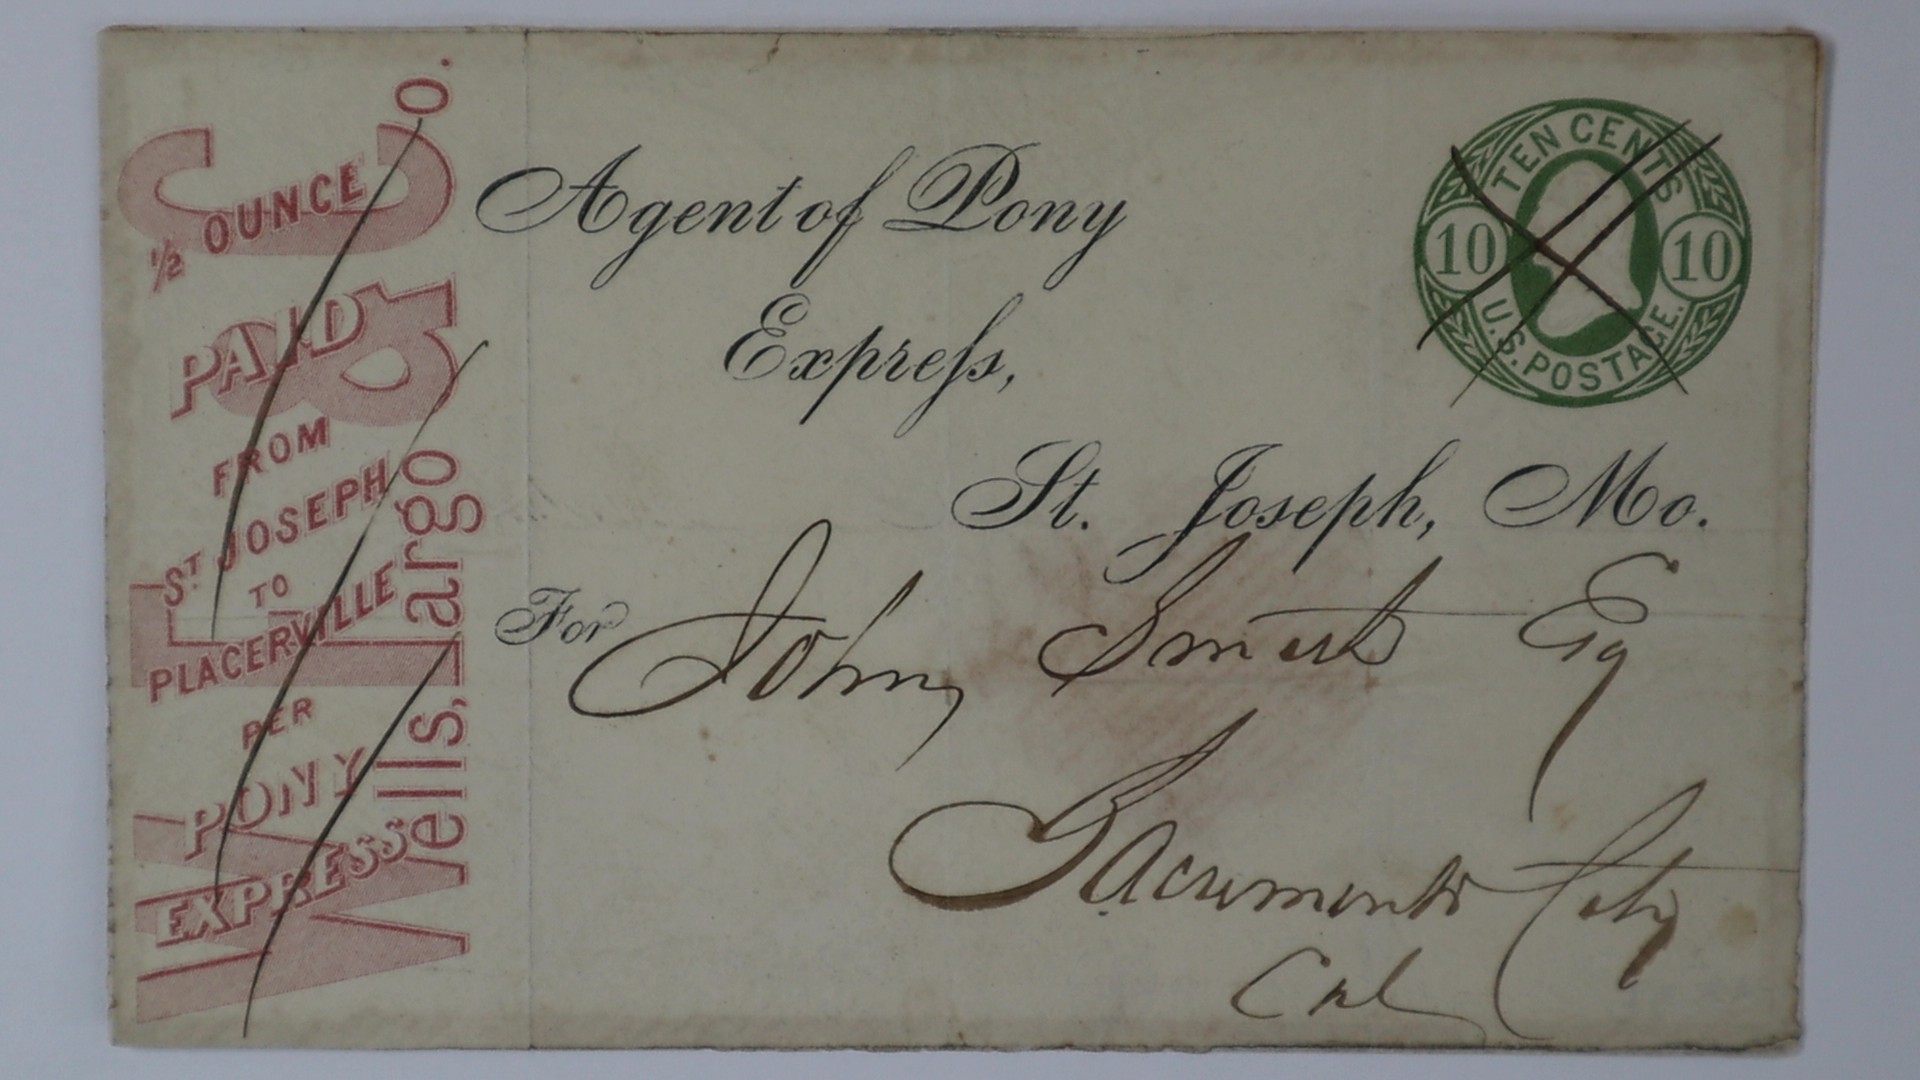 Wells, Fargo & Co.
½ OUNCE
PAID
FROM
ST JOSEPH
TO
PLACERVILLE
PER
PONY
EXPRESS
Agent of Pony
Express,
St. Joseph, Mo.
For John Smith Esq
Sacramento City
Cal
TEN CENTS
10 10
U.S. POSTAGE.